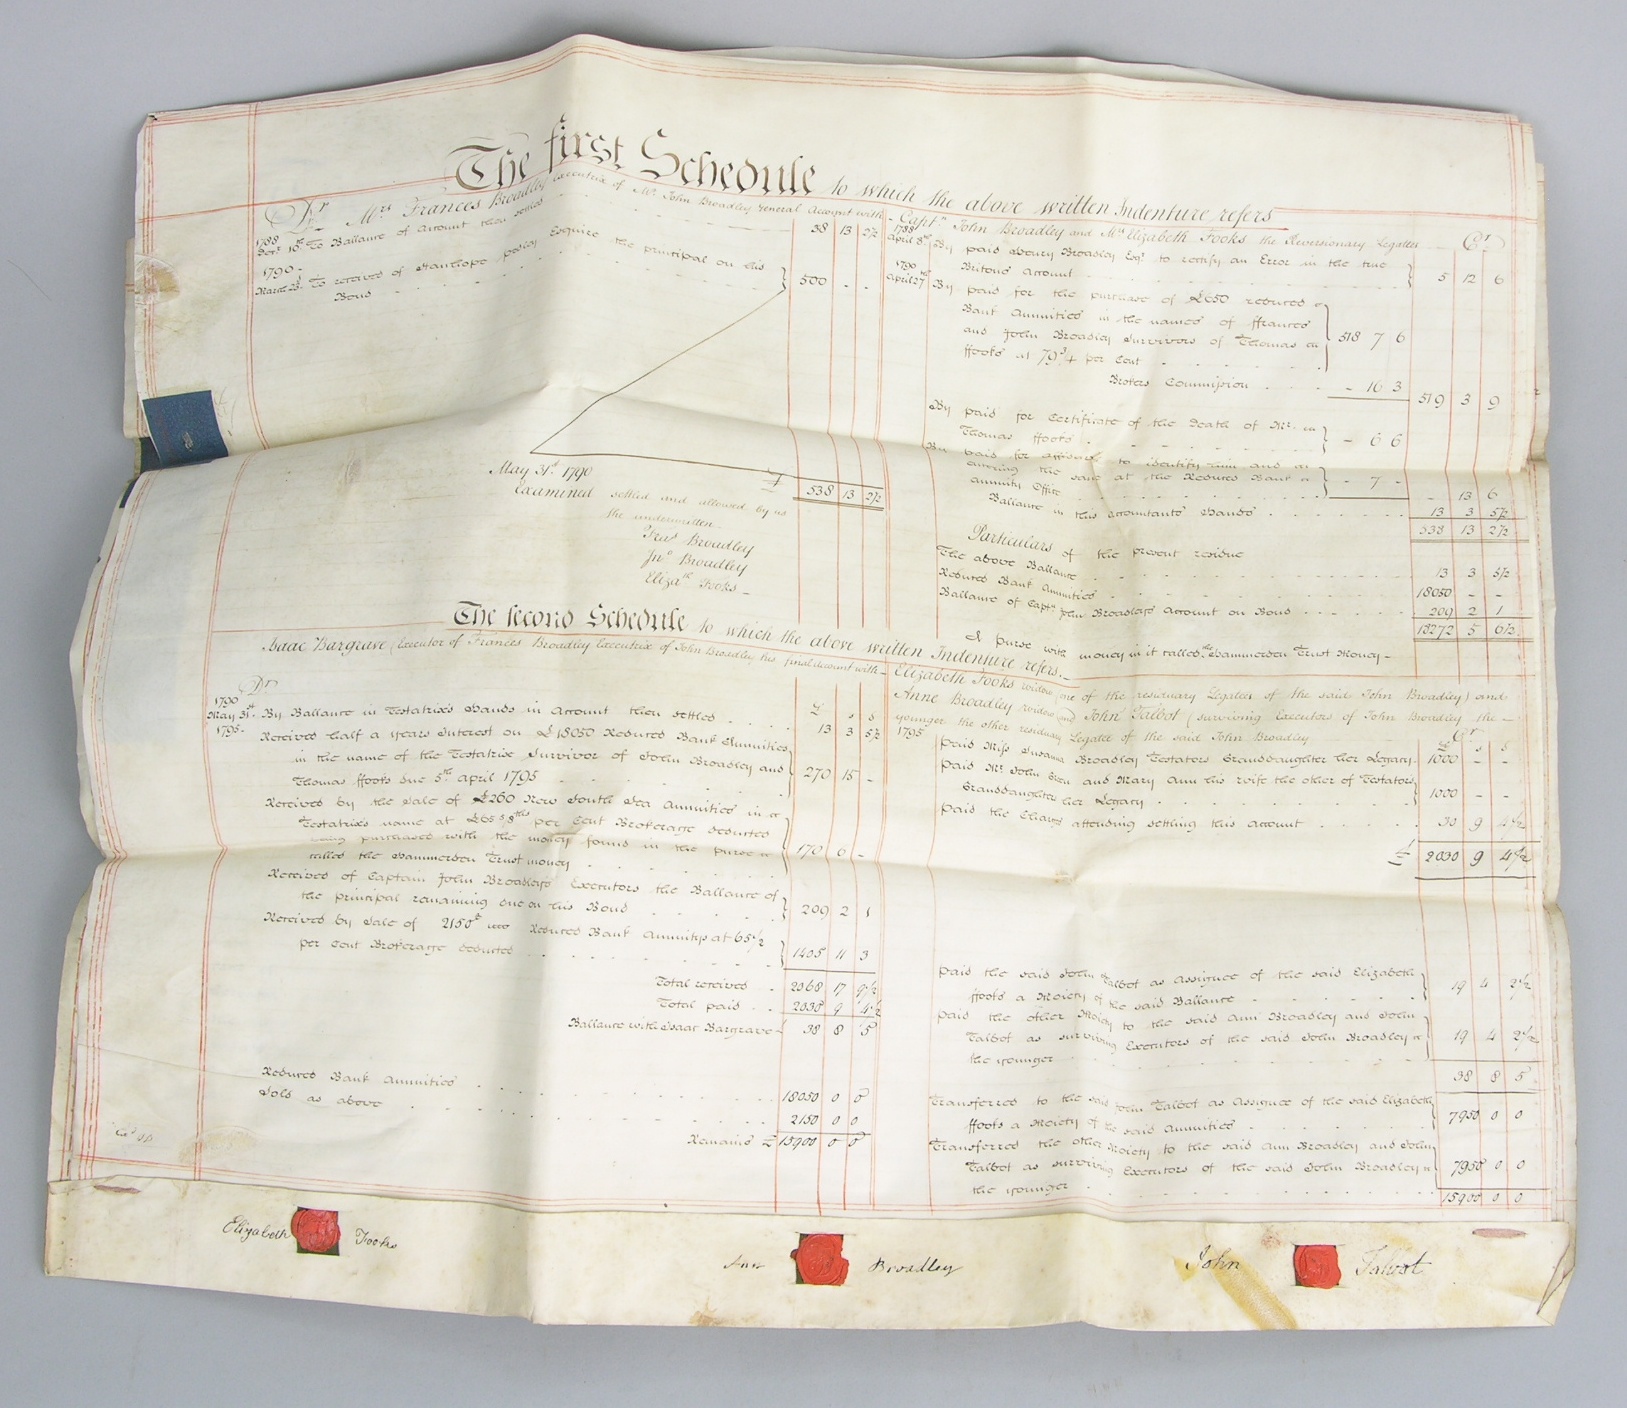 The first Schedule to which the above written Indenture refers
Dr Mrs Frances Broadley executrix of Mr John Broadley General Account with
1788
To Ballance of Account then settled 38 13 2½
1790
March To received of Stanhope Pedley Esquire the principal on his
Bond 500 - -
£ 538 13 2½
May 31st 1790
Examined settled and allowed by us
the underwritten
Fras Broadley
Jno Broadley
Elizath Fooks
Captn John Broadley and Mrs Elizabeth Fooks the Reversionary Legatees Cr
1788
April 8th By paid Henry Broadley Esqr to rectify an Error in the true
Britons Account 5 12 6
1790
April 27th By paid for the purchase of £650 reduced
Bank Annuities in the names of ffrances
and John Broadley Survivors of Thomas
ffooks at 79¾ per Cent 518 7 6
Brokers Commission - 16 3
519 3 9
By paid for Certificate of the Death of Mr
Thomas ffooks - 6 6
By paid for to identify him and
entering the same at the Reduced Bank
Annuity Office - 7 -
- 13 6
Ballance in this accomtants Hands 13 3 5½
538 13 2½
Particulars of the present residue
The above Ballance 13 3 5½
Reduced Bank Annuities 18050 - -
Ballance of Captn John Broadleys Account on Bond 209 2 1
18272 5 6½
A purse with money in it called the Hammerden Trust Money
The second Schedule to which the above written Indenture refers.
Isaac Bargrave (Executor of Frances Broadley Executrix of John Broadley) his final Account with
Dr
1790
May 31st By Ballance in Testatrixs Hands in Account then settled 13 3 5½
1795 Received half a years Interest on £18050 Reduced Bank Annuities
in the name of the Testatrix Survivor of John Broadley and
Thomas ffooks due 5th April 1795 270 15 -
Received by the Sale of £260 New South Sea Annuities in
Testatrixs name at £65 5/8ths per Cent Brokerage deducted
being purchased with the money found in the purse
called the Hammerden Trust money 170 6 -
Received of Captain John Broadleys Executors the Ballance of
the principal remaining due on his Bond 209 2 1
Received by Sale of 2150£ Reduced Bank Annuitys at 65½
per Cent Brokerage deducted 1405 11 3
Total received 2068 17 9½
Total paid 2030 9 4½
Ballance with Isaac Bargrave 38 8 5
Reduced Bank Annuities 18050 0 0
Sold as above 2150 0 0
Remains £ 15900 0 0
Elizabeth Fooks widow (one of the residuary Legatees of the said John Broadley) and
Anne Broadley widow and John Talbot (surviving Executors of John Broadley the
younger the other residuary Legatee of the said John Broadley
1795 Cr
Paid Miss Susanna Broadley Testators Granddaughter her Legacy 1000 - -
Paid Mr John Green and Mary Ann his wife the other of Testators
Granddaughters her Legacy 1000 - -
Paid the Charges attending settling this Account 30 9 4½
£ 2030 9 4½
Paid the said John Talbot as Assignee of the said Elizabeth
ffooks a Moiety of the said Ballance 19 4 2½
Paid the other Moiety to the said Ann Broadley and John
Talbot as surviving Executors of the said John Broadley
the younger 19 4 2½
38 8 5
Transferred to the said John Talbot as Assignee of the said Elizabeth
ffooks a Moiety of the said Annuities 7950 0 0
Transferred the other Moiety to the said Ann Broadley and John
Talbot as surviving Executors of the said John Broadley
the younger 7950 0 0
15900 0 0
Elizabeth Fooks
Ann Broadley
John Talbot